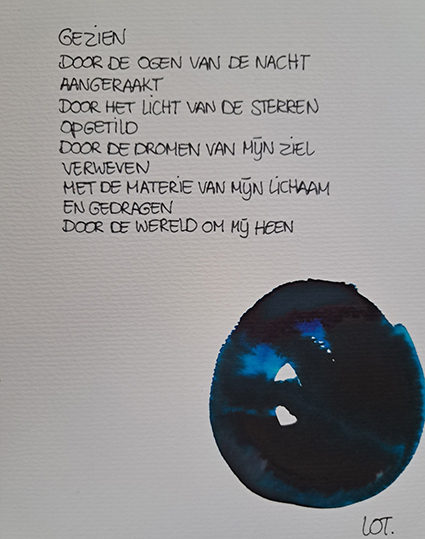 GEZIEN
DOOR DE OGEN VAN DE NACHT
AANGERAAKT
DOOR HET LICHT VAN DE STERREN
OPGETILD
DOOR DE DROMEN VAN MIJN ZIEL
VERWEVEN
MET DE MATERIE VAN MIJN LICHAAM
EN GEDRAGEN
DOOR DE WERELD OM MIJ HEEN
LOT.